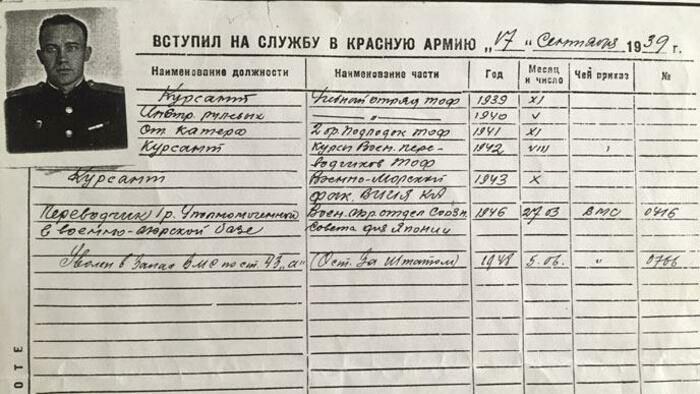 ВСТУПИЛ НА СЛУЖБУ В КРАСНУЮ АРМИЮ „17" Сентября 1939 г.
Наименование должности Наименование части Год Месяц и число Чей приказ №
Курсант отряд ТОФ 1939 XI
Инстр. рулевых " 1940 V
Ст. катера 2 бр. Подлодок ТОФ 1941 XI
Курсант Курсы Воен. пере- 1942 VIII
водчиков ТОФ
Курсант Военно-Морской 1943 X
фак. ВИИЯ КА
Переводчик 1 р. Уполномоченный Воен. Мор. отдел Союзн. 1946 27.03 ВМС 0416
в военно-морской базе Совета для Японии
Уволен в Запас ВМС по ст. 43 „а" (Ост. За Штатом) 1948 5.06. " 0766
ОТЕ